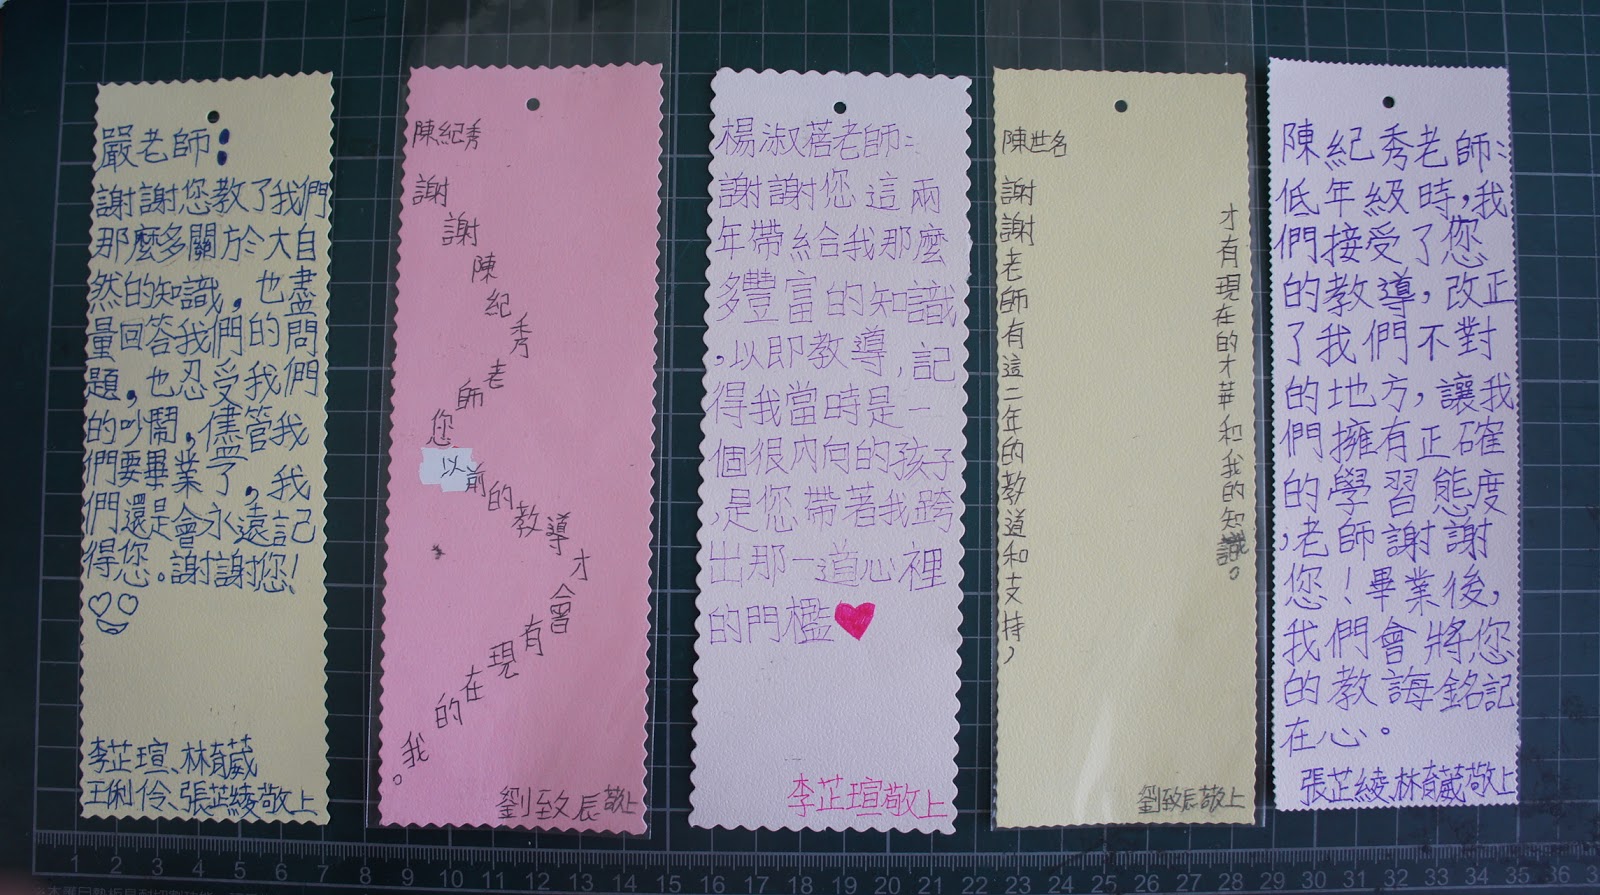 嚴老師:
謝謝您教了我們
那麼多關於大自
然的知識,也盡
量回答我們的問
題,也忍受我們
的吵鬧,儘管我
們要畢業了,我
們還是會永遠記
得您。謝謝您!
李芷瑄、林育葳
王俐伶、張芷綾敬上
陳紀秀
謝謝陳紀秀老師您以前的教導才會有現在的我。
劉致辰敬上
楊淑蓓老師:
謝謝您這兩
年帶給我那麼
多豐富的知識
,以即教導,記
得我當時是一
個很內向的孩子
,是您帶著我跨
出那一道心裡
的門檻
李芷瑄敬上
陳世名
謝謝老師有這二年的教道和支持,
才有現在的才華和我的知識。
劉致辰敬上
陳紀秀老師:
低年級時,我
們接受了您
的教導,改正
了我們不對
的地方,讓我
們擁有正確
的學習態度
,老師謝謝
您!畢業後,
我們會將您
的教誨銘記
在心。
張芷綾、林育葳敬上
1 2 3 4 5 6 7 8 9 10 11 12 13 14 15 16 17 18 19 20 21 22 23 24 25 26 27 28 29 30 31 32 33 34 35 36